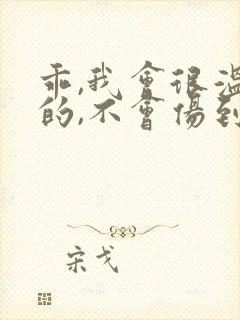 乖,我會很溫
的,不會傷到
宋戈